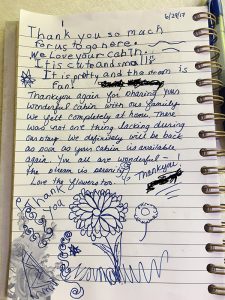 6/29/17
Thank you so much
for us to go here.
We love your cabin.
It is cute and small!
It is pretty and the stream is
fan
Thankyou again for sharing your
wonderful cabin with our family.
We felt completely at home. There
was not one thing lacking during
our stay. We definitely will be back
as soon as your cabin is available
again. You all are wonderful -
the stream is serenity
Love the flowers too.
Thankyou
Thank
you